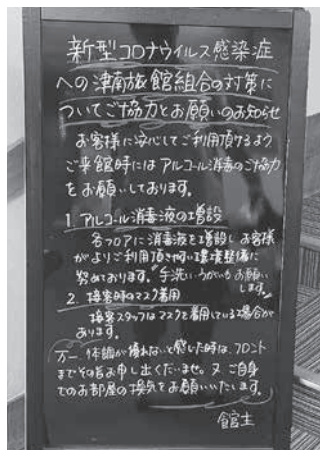 新型コロナウイルス感染症
への津南旅館組合の対策に
ついてご協力とお願いのお知らせ
お客様に安心してご利用頂けるよう
ご来館時にはアルコール消毒のご協力
をお願いしております。
1 アルコール消毒液の増設
各フロアに消毒液を増設しお客様
がよりご利用頂き易い環境整備に
努めております。手洗いうがいもお願い
します。
2. 接客時のマスク着用
接客スタッフはマスクを着用している場合が
あります。
万一 体調が優れないと感じた時は、フロント
までその旨お申し出くださいませ。又ご自身
でのお部屋の換気をお願いいたします。
館主